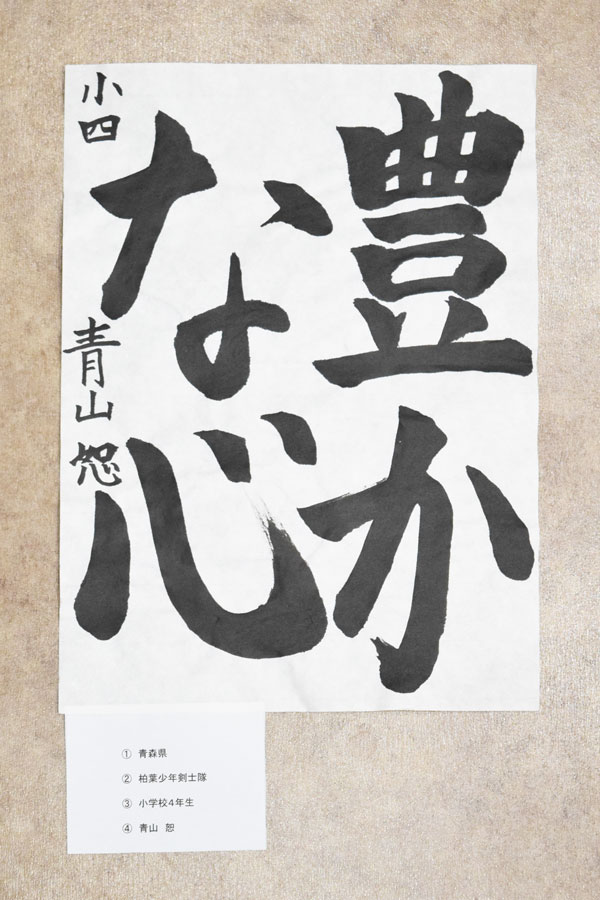 豊か
な心
小四 青山 恕
① 青森県
② 柏葉少年剣士隊
③ 小学校4年生
④ 青山 恕